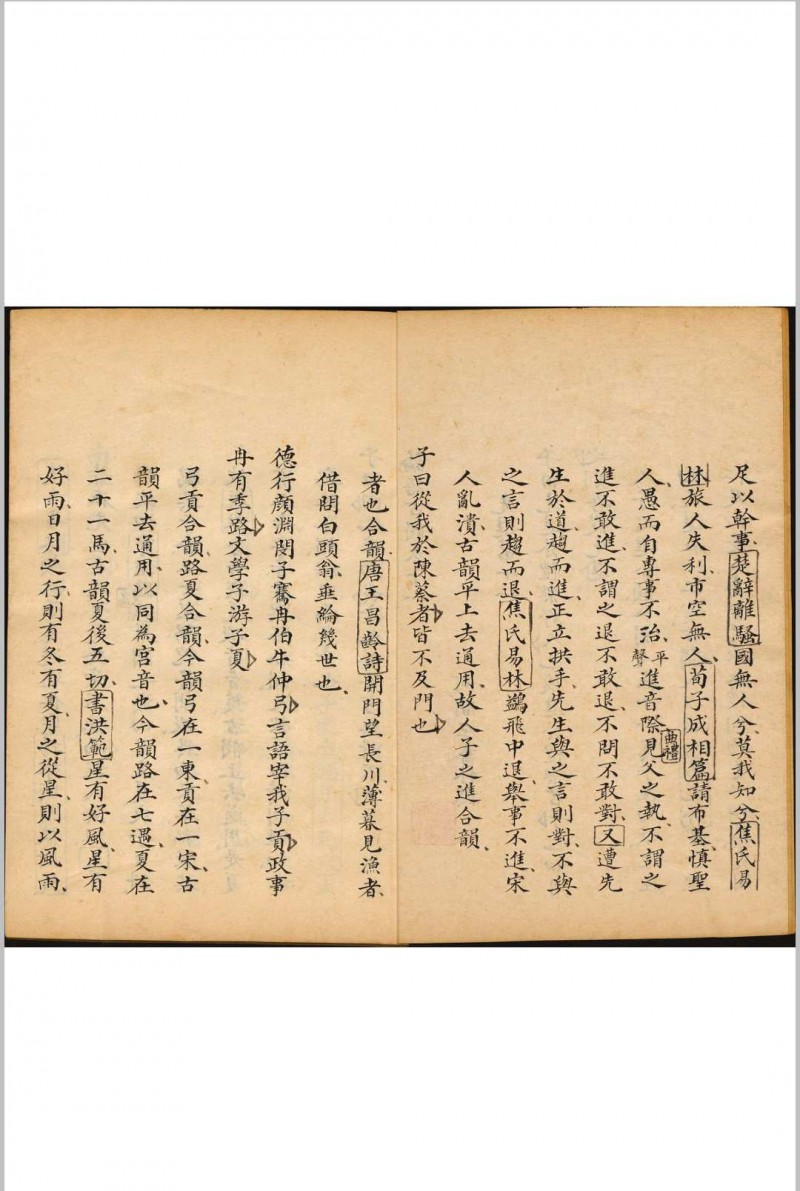 足以幹事楚辭離騷國無人兮莫我知兮焦氏易
林旅人失利市空無人荀子成相篇請布基慎聖
人愚而自專事不治平聲進音際曲禮見父之執不謂之
進不敢進不謂之退不敢退不問不敢對又遭先
生於道趨而進正立拱手先生與之言則對不與
之言則趨而退焦氏易林鷁飛中退舉事不進宋
人亂潰古韻平上去通用故人子之進合韻
子曰從我於陳蔡者皆不及門也
者也合韻唐王昌齡詩開門望長川薄暮見漁者
借問白頭翁垂綸幾世也
德行顏淵閔子騫冉伯牛仲弓言語宰我子貢政事
冉有季路文學子游子夏
弓貢合韻路夏合韻今韻弓在一東貢在一宋古
韻平去通用以同為宮音也今韻路在七遇夏在
二十一馬古韻夏後五切書洪範星有好風星有
好雨日月之行則有冬有夏月之從星則以風雨